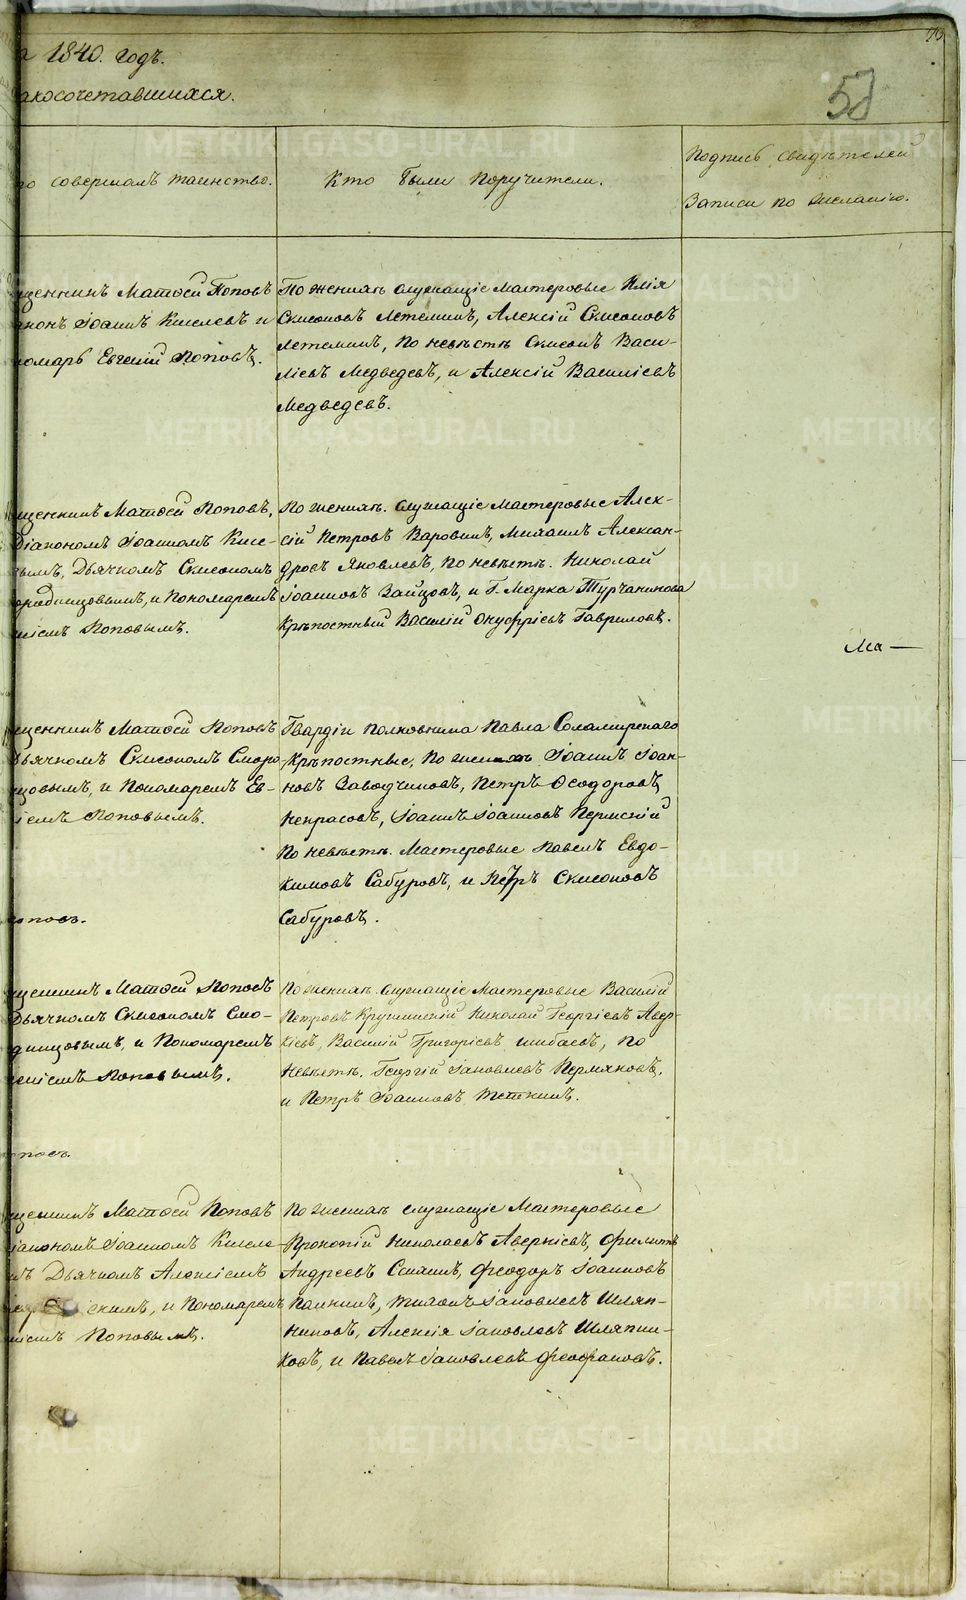 а 1840. годъ.
акосочетавшихся.
58
то совершалъ таинство.
Кто были поручители.
Подпись свидѣтелей
Записи по желанію.
щенникъ Матѳей Поповъ
яконъ Іоаннъ Киселевъ и
номарь Евгеній Поповъ.
По женихѣ служащіе мастеровые Илія
Симеоновъ Летеминъ, Алексій Симеоновъ
Летеминъ, по невѣстѣ Симеонъ Васи-
ліевъ Медведевъ, и Алексій Василіевъ
Медведевъ.
щенникъ Матѳей Поповъ,
Діакономъ Іоанномъ Кисе-
вымъ, Дьячкомъ Симеономъ
ородинцовымъ, и Пономаремъ
ніемъ Поповымъ.
По женихѣ. служащіе мастеровые Алек-
сій Петровъ Варовинъ, Михаилъ Алексан-
дровъ Яковлевъ, по невѣстѣ. Николай
Іоанновъ Зайцовъ, и Г. Марка Турчанинова
Крѣпостный Василій Онуфріевъ Гавриловъ.
Ма —
щенникъ Матѳей Поповъ
Дьячкомъ Симеономъ Сморо
цовымъ, и Пономаремъ Ев-
ніемъ Поповымъ.
Гвардіи полковника Павла Соламирскаго
Крѣпостные, по женихѣ Іоаннъ Іоан-
новъ Заводчиковъ, Петръ Ѳеодоровъ
Некрасовъ, Іоаннъ Іоанновъ Пермскій
по невѣстѣ. Мастеровые Павелъ Евдо-
кимовъ Сабуровъ, и Петръ Симеоновъ
Сабуровъ.
поповъ.
щенникъ Матѳей Поповъ
Дьячкомъ Симеономъ Смо-
динцовымъ, и Пономаремъ
еніемъ Поповымъ.
По женихѣ. служащіе Мастеровые Василій
Петровъ Крушинскій Николай Георгіевъ Авер-
кіевъ, Василій Григоріевъ шибаевъ, по
Невѣстѣ. Георгій Іаковлевъ Пермяковъ,
и Петръ Іоанновъ Теткинъ.
оповъ.
щенникъ Матѳей Поповъ
іакономъ Іоанномъ Кисе
мъ Дьячкомъ Алексіемъ
скимъ, и Пономаремъ
ніемъ Поповымъ.
По женихѣ служащіе Мастеровые
Прокопій Николаевъ Аверкіевъ, Филипъ
Андреевъ Сапинъ, Феодоръ Іоанновъ
Панкинъ, Тихонъ Іаковлевъ Шляп-
никовъ, Алексія Іаковлевъ Шляпни-
ковъ, и Павелъ Іаковлевъ Феофановъ.